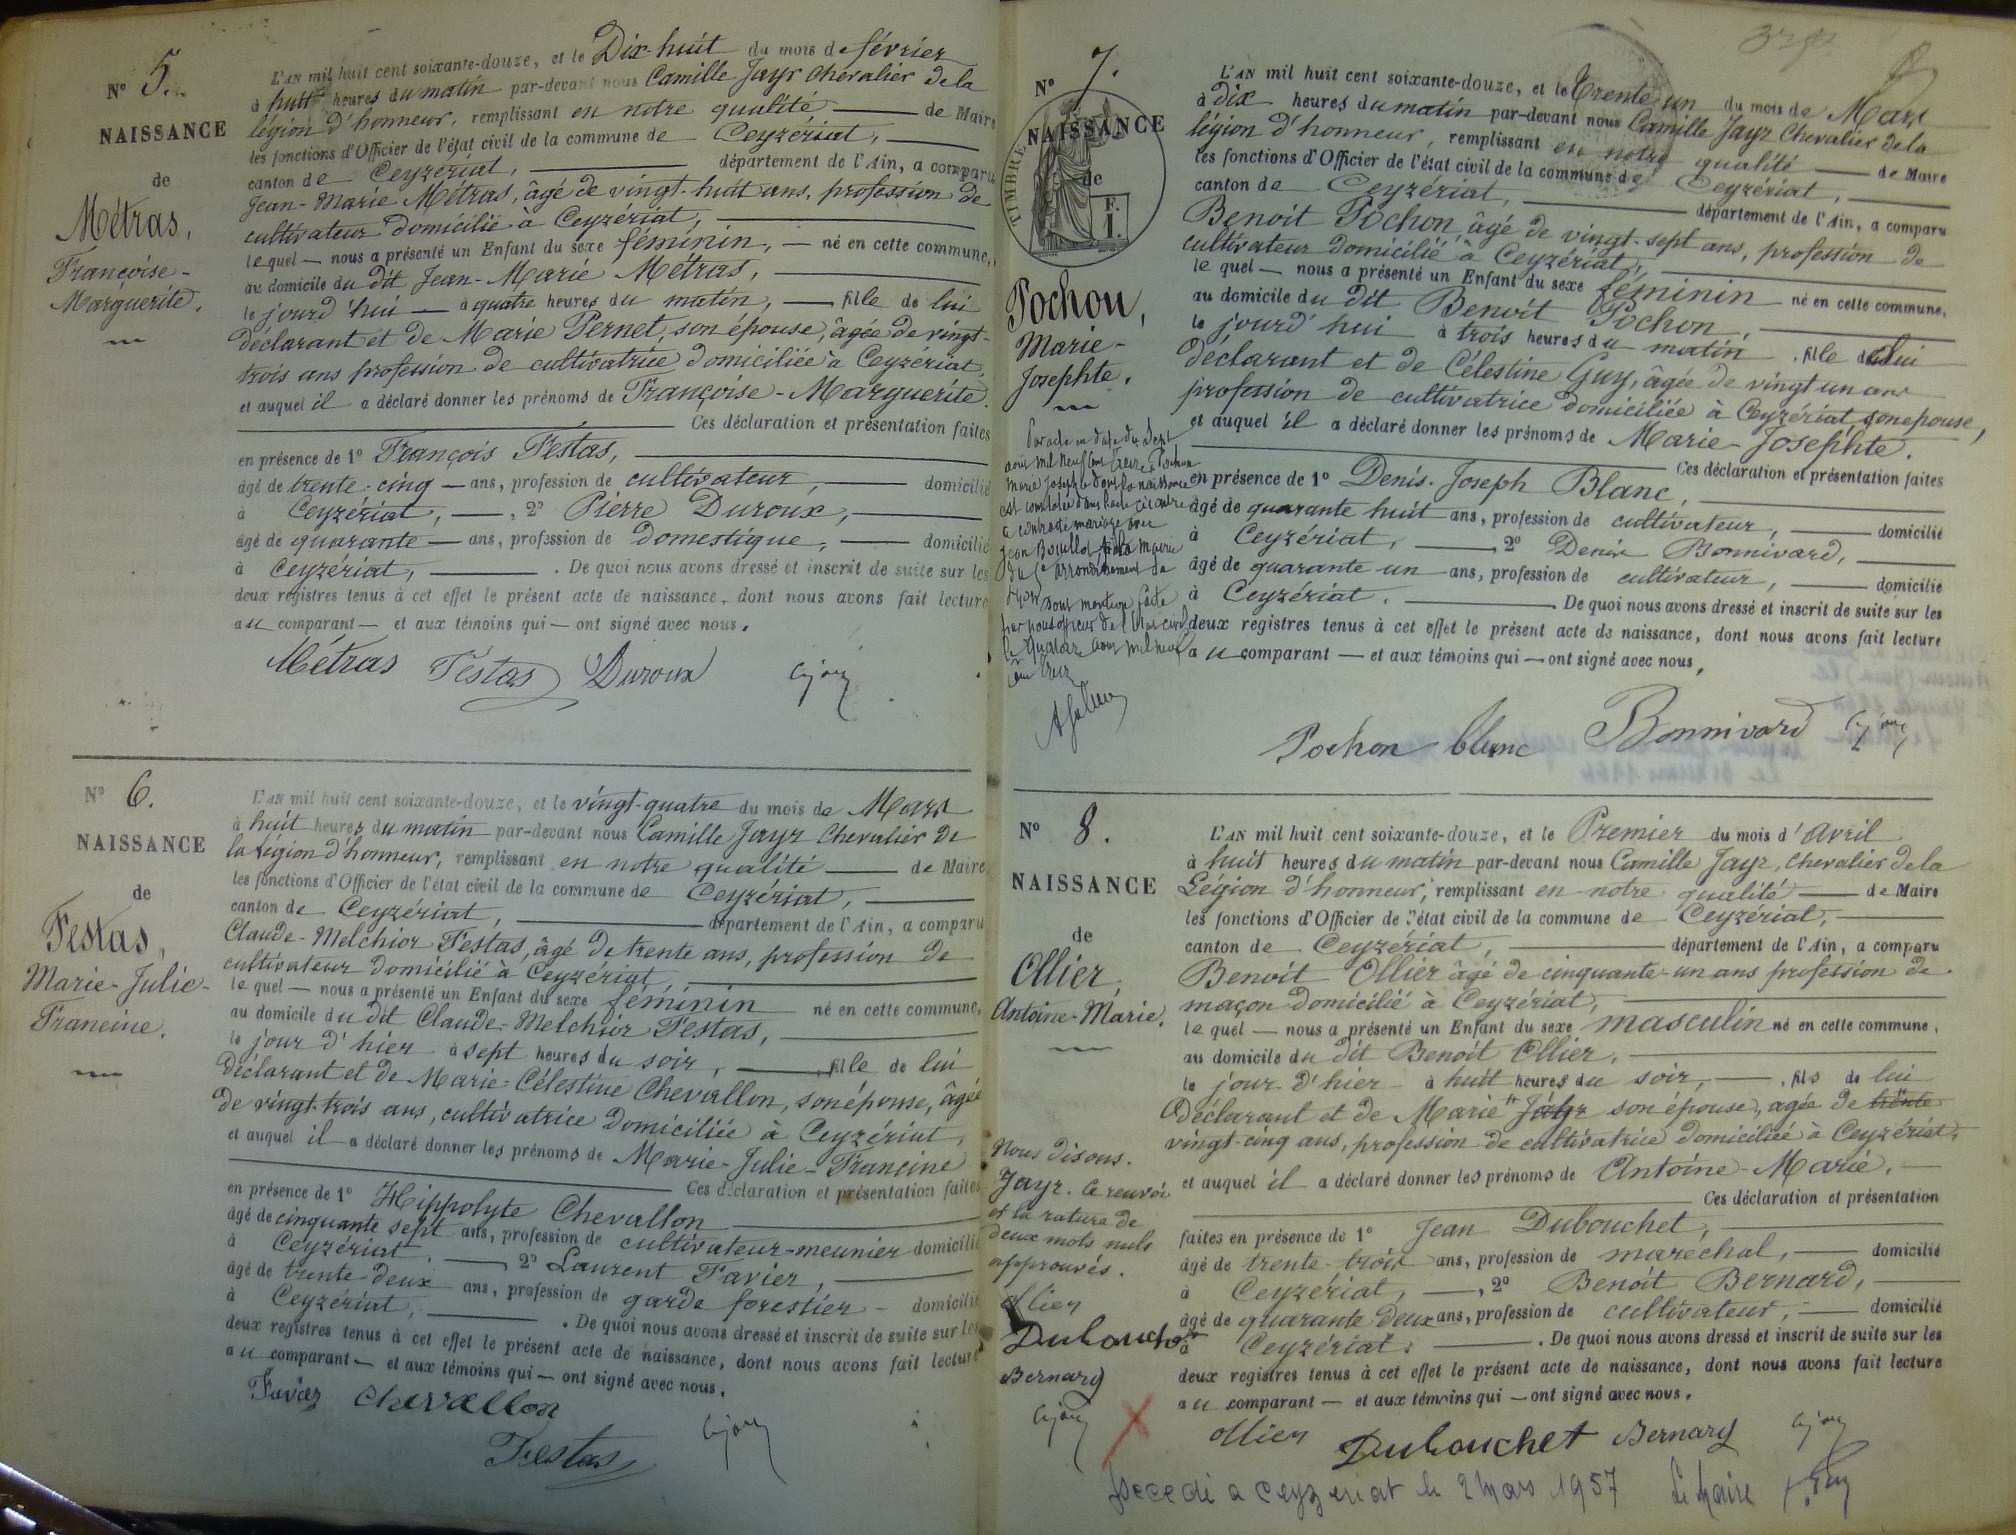 N° 5.
NAISSANCE
de
Métras,
Françoise-
Marguerite.
L'AN mil huit cent soixante-douze, et le Dix-huit du mois de février
à huit heures du matin par-devant nous Camille Jayr Chevalier de la
légion d'honneur, remplissant en notre qualité de Maire
les fonctions d'Officier de l'état civil de la commune de Ceyzériat,
canton de Ceyzériat, département de l'Ain, a comparu
Jean-Marie Métras, âgé de vingt-huit ans, profession de
cultivateur domicilié à Ceyzériat,
lequel — nous a présenté un Enfant du sexe féminin, — né en cette commune,
au domicile du dit Jean-Marie Métras,
le jourd'hui — à quatre heures du matin, — fille de lui
déclarant et de Marie Pernet, son épouse, âgée de vingt-
trois ans profession de cultivatrice domiciliée à Ceyzériat,
et auquel il a déclaré donner les prénoms de Françoise-Marguerite.
Ces déclaration et présentation faites
en présence de 1° François Festas,
âgé de trente-cinq — ans, profession de cultivateur, — domicilié
à Ceyzériat, —, 2° Pierre Duroux,
âgé de quarante — ans, profession de domestique, — domicilié
à Ceyzériat, — . De quoi nous avons dressé et inscrit de suite sur les
deux registres tenus à cet effet le présent acte de naissance, dont nous avons fait lecture
au comparant — et aux témoins qui — ont signé avec nous.
Métras Festas Duroux C Jayr
N° 6.
NAISSANCE
de
Festas,
Marie-Julie-
Francine.
L'AN mil huit cent soixante-douze, et le vingt-quatre du mois de Mars
à huit heures du matin par-devant nous Camille Jayr Chevalier de
la Légion d'honneur, remplissant en notre qualité — de Maire
les fonctions d'Officier de l'état civil de la commune de Ceyzériat,
canton de Ceyzériat, département de l'Ain, a comparu
Claude-Melchior Festas, âgé de trente ans, profession de
cultivateur domicilié à Ceyzériat,
lequel — nous a présenté un Enfant du sexe féminin né en cette commune,
au domicile du dit Claude-Melchior Festas,
le jour d'hier à sept heures du soir, — fille de lui
déclarant et de Marie-Célestine Chevallon, son épouse, âgée
de vingt-trois ans, cultivatrice domiciliée à Ceyzériat,
et auquel il a déclaré donner les prénoms de Marie-Julie-Francine
Ces déclaration et présentation faites
en présence de 1° Hippolyte Chevallon
âgé de cinquante sept ans, profession de cultivateur-meunier domicilié
à Ceyzériat, — 2° Laurent Favier,
âgé de trente-deux ans, profession de garde forestier — domicilié
à Ceyzériat, — . De quoi nous avons dressé et inscrit de suite sur les
deux registres tenus à cet effet le présent acte de naissance, dont nous avons fait lecture
au comparant — et aux témoins qui — ont signé avec nous.
Favier Chevallon
Festas C Jayr
N° 7.
NAISSANCE
de
TIMBRE
F.
1.
Pochon,
Marie-
Josephte.
Par acte en date du sept
août mil neuf cent treize Pochon
Marie Josephte dont la naissance
est constatée dans l'acte ci contre
a contracté mariage avec
Jean Bouillot à la Mairie
du 5e arrondissement de
Lyon Dont mention faite
par nous officier de l'état civil
le quatorze août mil neuf
cent treize
L'AN mil huit cent soixante-douze, et le Trente un du mois de Mars
à dix heures du matin par-devant nous Camille Jayr Chevalier de la
légion d'honneur, remplissant en notre qualité — de Maire
les fonctions d'Officier de l'état civil de la commune de Ceyzériat,
canton de Ceyzériat, département de l'Ain, a comparu
Benoit Pochon, âgé de vingt-sept ans, profession de
cultivateur domicilié à Ceyzériat,
lequel — nous a présenté un Enfant du sexe féminin né en cette commune,
au domicile du dit Benoit Pochon,
le jourd'hui à trois heures du matin, fille de lui
déclarant et de Célestine Guy, âgée de vingt un ans
profession de cultivatrice domiciliée à Ceyzériat son épouse,
et auquel il a déclaré donner les prénoms de Marie-Josephte.
Ces déclaration et présentation faites
en présence de 1° Denis-Joseph Blanc,
âgé de quarante huit ans, profession de cultivateur, — domicilié
à Ceyzériat, — 2° Denis Bonnivard,
âgé de quarante un ans, profession de cultivateur, — domicilié
à Ceyzériat. — De quoi nous avons dressé et inscrit de suite sur les
deux registres tenus à cet effet le présent acte de naissance, dont nous avons fait lecture
au comparant — et aux témoins qui — ont signé avec nous.
Pochon blanc Bonnivard C Jayr
N° 8.
NAISSANCE
de
Ollier,
Antoine-Marie.
Nous disons.
Jayr. Ce renvoi
et la rature de
deux mots nuls
approuvés.
Ollier
Dubouchet
Bernard
C Jayr
L'AN mil huit cent soixante-douze, et le Premier du mois d'Avril
à huit heures du matin par-devant nous Camille Jayr, Chevalier de la
Légion d'honneur, remplissant en notre qualité — de Maire
les fonctions d'Officier de l'état civil de la commune de Ceyzériat,
canton de Ceyzériat, département de l'Ain, a comparu
Benoit Ollier âgé de cinquante-un ans profession de
maçon domicilié à Ceyzériat,
lequel — nous a présenté un Enfant du sexe masculin né en cette commune,
au domicile du dit Benoit Ollier,
le jour d'hier à huit heures du soir, — , fils de lui
déclarant et de Marie Jahr son épouse, agée de trente
vingt-cinq ans, profession de cultivatrice domiciliée à Ceyzériat,
et auquel il a déclaré donner les prénoms de Antoine-Marie,
Ces déclaration et présentation
faites en présence de 1° Jean Dubouchet,
âgé de trente-trois ans, profession de marechal, — domicilié
à Ceyzériat, —, 2° Benoit Bernard,
âgé de quarante-deux ans, profession de cultivateur, — domicilié
à Ceyzériat. — . De quoi nous avons dressé et inscrit de suite sur les
deux registres tenus à cet effet le présent acte de naissance, dont nous avons fait lecture
au comparant — et aux témoins qui — ont signé avec nous.
Ollier Dubouchet Bernard C Jayr
Decedé a Ceyzeriat le 2 Mars 1957 Le Maire